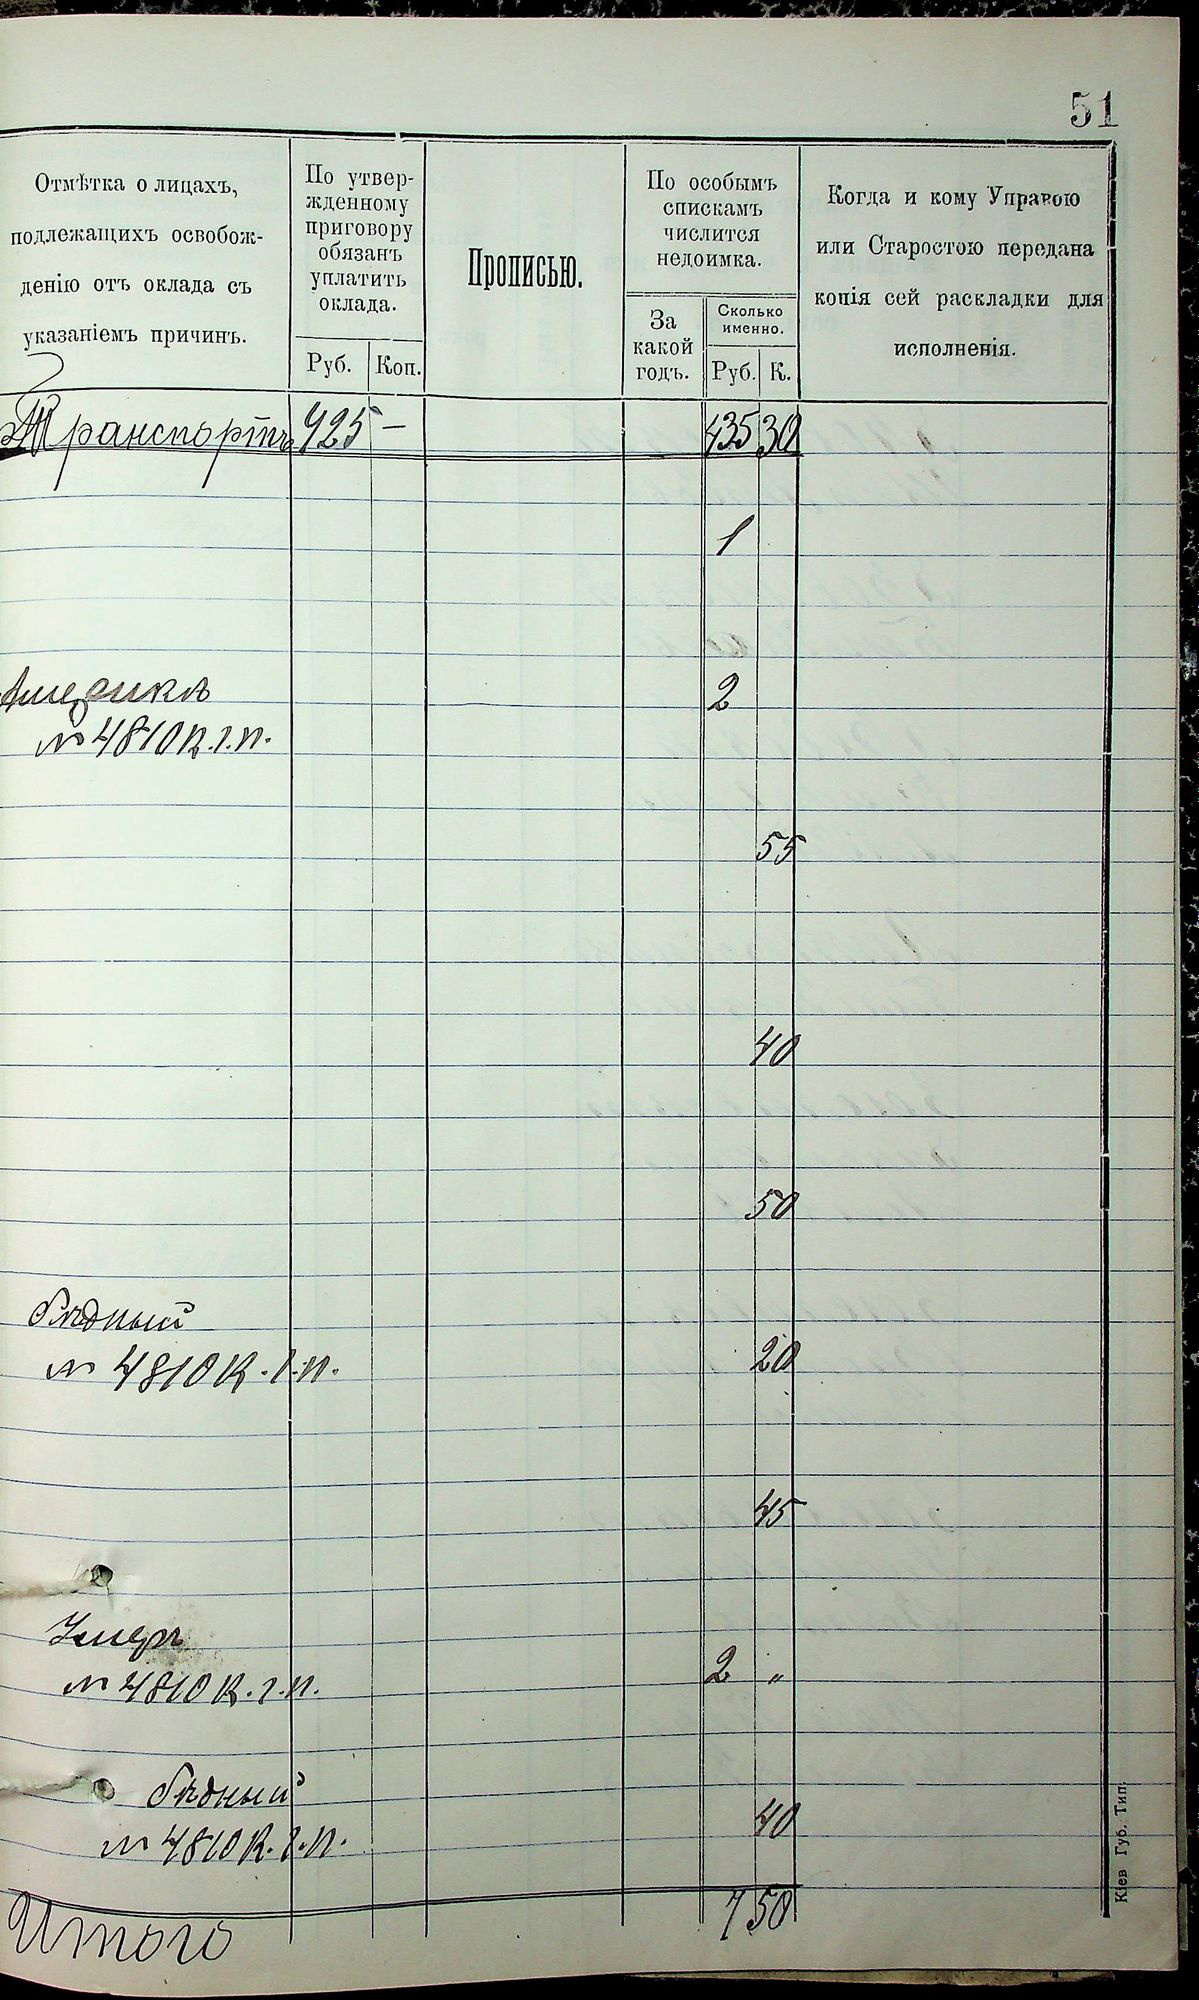 51
Отмѣтка о лицахъ,
подлежащихъ освобож-
денію отъ оклада съ
указаніемъ причинъ.
По утвер-
жденному
приговору
обязанъ
уплатить
оклада.
Руб. Коп.
Прописью.
По особымъ
спискамъ
числится
недоимка.
За
какой
годъ.
Сколько
именно.
Руб. К.
Когда и кому Управою
или Старостою передана
копія сей раскладки для
исполненія.
Транспортъ 925 — 435 30
1
Америкѣ 2
№ 4810 К.г.п.
55
40
50
бѣдный
№ 4810 К.г.п. 20
45
Умеръ
№ 4810 К.г.п. 2 „
бѣдный
№ 4810 К.г.п. 40
Итого 7 50
Кіев Губ. Тип.